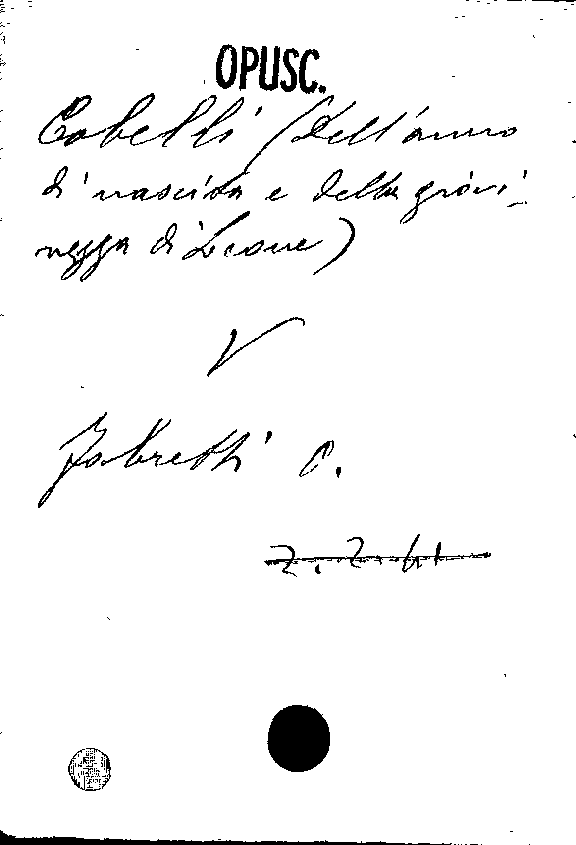 OPUSC.
Cobelli (Dell'anno
di nascita e della giovi-
nezza di Leone)
V
Fabretti C.
Z. Z.